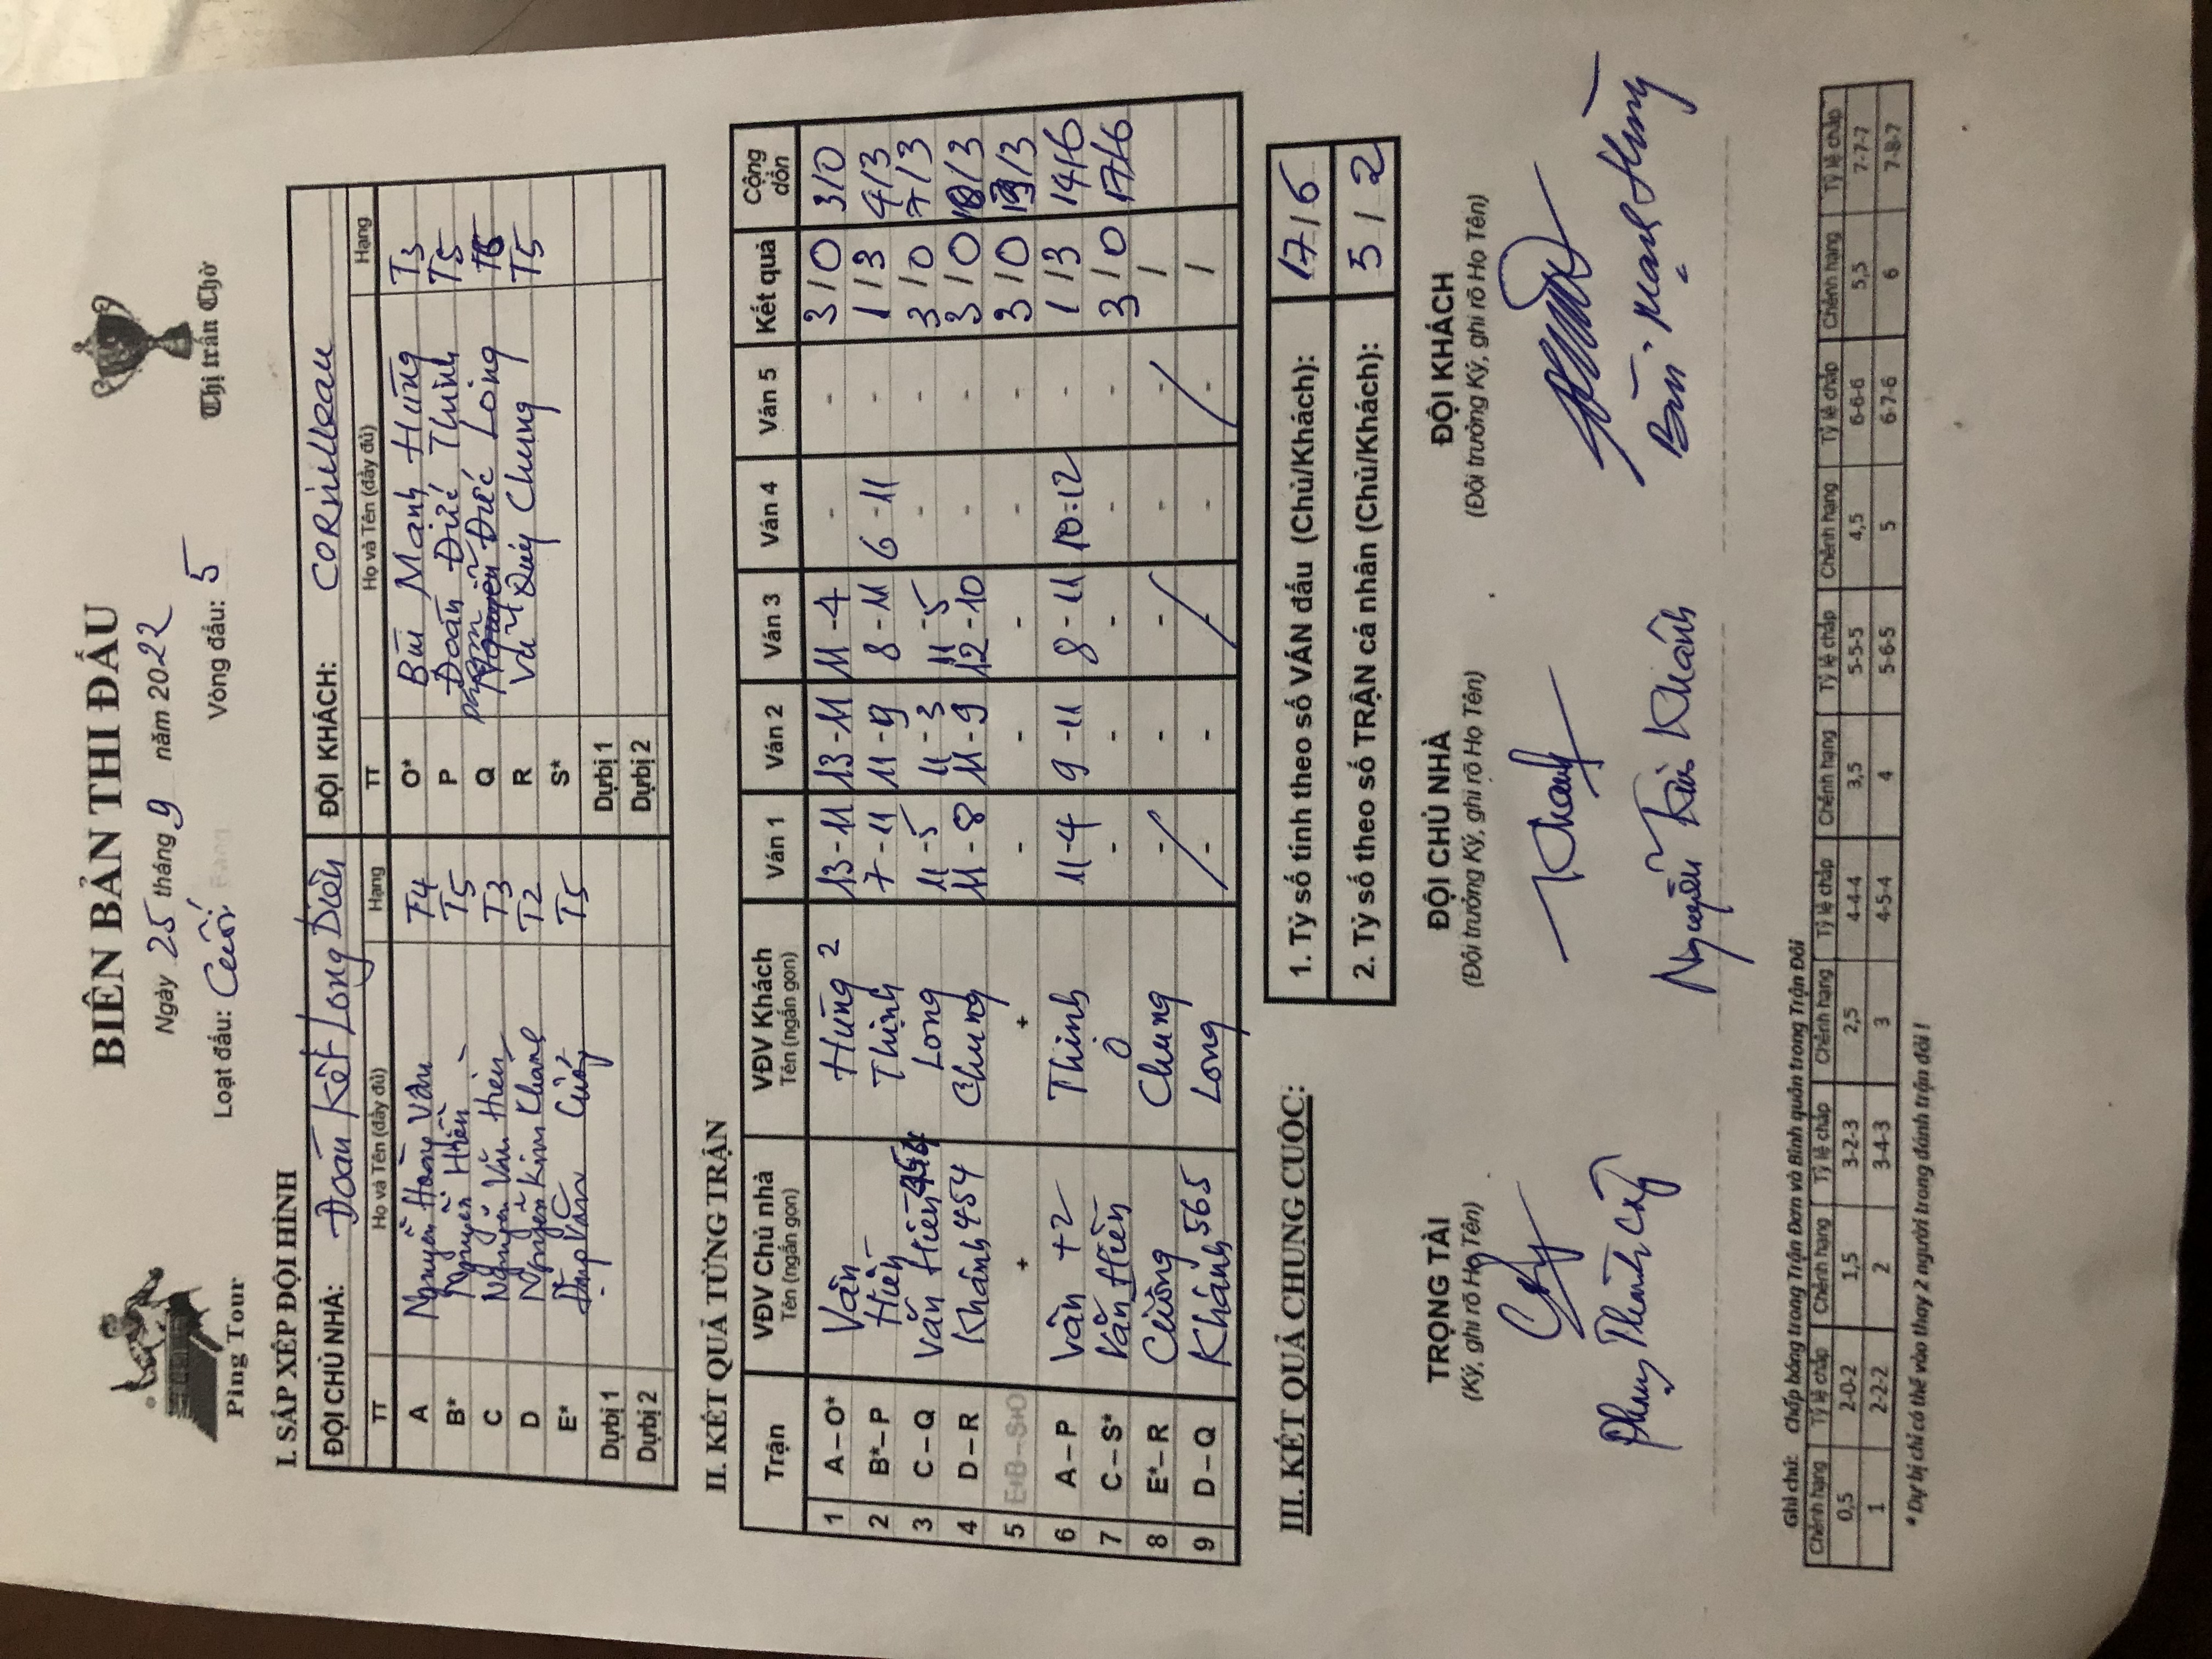 BIÊN BẢN THI ĐẤU
Ping Tour
Ngày 25 tháng 9 năm 2022
Loạt đấu: Cuối Vòng đấu: 5
Thị trấn Chờ
I. SẮP XẾP ĐỘI HÌNH
ĐỘI CHỦ NHÀ: Đoàn Kết Long Biên ĐỘI KHÁCH: CORNilleau
TT Họ và Tên (đầy đủ) Hạng TT Họ và Tên (đầy đủ) Hạng
A Nguyễn Hoàng Vân T4 O* Bùi Mạnh Hùng T3
B* Nguyễn Hiền T5 P Đoàn Đức Thịnh T5
C Nguyễn Văn Hiền T3 Q Đức Long
D Nguyễn Kim Khanh T2 R Vũ Duy Chung T5
E* Đặng Văn Cường T5 S*
Dự bị 1 Dự bị 1
Dự bị 2 Dự bị 2
II. KẾT QUẢ TỪNG TRẬN
Trận VĐV Chủ nhà Tên (ngắn gọn) VĐV Khách Tên (ngắn gọn) Ván 1 Ván 2 Ván 3 Ván 4 Ván 5 Kết quả Cộng dồn
1 A – O* Vân Hùng 2 13-11 13-11 11-4 - - 3/0 3/0
2 B*– P Hiền Thịnh 7-11 11-9 8-11 6-11 - 1/3 4/3
3 C – Q Văn Hiền Long 11-5 11-3 11-5 - - 3/0 7/3
4 D – R Khánh 454 Chung 11-8 11-9 12-10 - - 3/0 10/3
5 E+B–S+O + + - - - - - 3/0 13/3
6 A – P Vân +2 Thịnh 11-4 9-11 8-11 10-12 - 1/3 14/6
7 C – S* Văn Hiền O - - - - - 3/0 17/6
8 E*– R Cường Chung - - - - - /
9 D – Q Khánh 565 Long - - - - - /
III. KẾT QUẢ CHUNG CUỘC:
1. Tỷ số tính theo số VÁN đấu (Chủ/Khách): 17/6
2. Tỷ số theo số TRẬN cá nhân (Chủ/Khách): 5/2
TRỌNG TÀI ĐỘI CHỦ NHÀ ĐỘI KHÁCH
(Ký, ghi rõ Họ Tên) (Đội trưởng Ký, ghi rõ Họ Tên) (Đội trưởng Ký, ghi rõ Họ Tên)
Khanh
Nguyễn Khánh Bùi Mạnh Hùng
Ghi chú: Chấp bóng trong Trận Đơn và Bình quân trong Trận Đôi
Chênh hạng Tỷ lệ chấp Chênh hạng Tỷ lệ chấp Chênh hạng Tỷ lệ chấp Chênh hạng Tỷ lệ chấp Chênh hạng Tỷ lệ chấp Chênh hạng Tỷ lệ chấp
0,5 2-0-2 1,5 3-2-3 2,5 4-4-4 3,5 5-5-5 4,5 6-6-6 5,5 7-7-7
1 2-2-2 2 3-4-3 3 4-5-4 4 5-6-5 5 6-7-6 6 7-8-7
* Dự bị chỉ có thể vào thay 2 người trong đánh trận đôi !